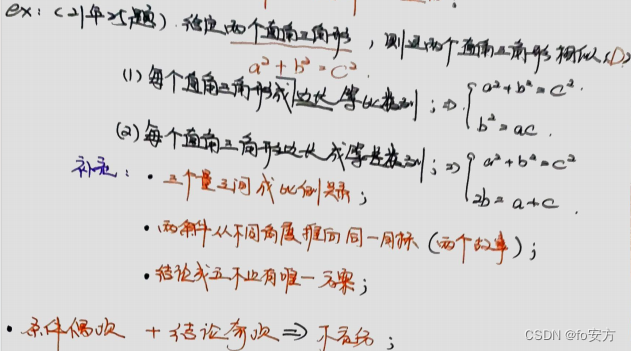 ex：（21年25题）.给定两个直角三角形，则这两个直角三角形相似（D）
a²+b²=c².
（1）每个直角三角形成边长等比数列；⇒ { a²+b²=c²
b²=ac .
（2）每个直角三角形边长成等差数列；⇒ { a²+b²=c²
2b=a+c .
补充：·三个量之间成比例关系；
·两条件从不同角度推向同一目标（两个故事）；
·结论成立不止有唯一方案；
·条件偶次 + 结论奇次 ⇒ 不充分；
CSDN @fo安方